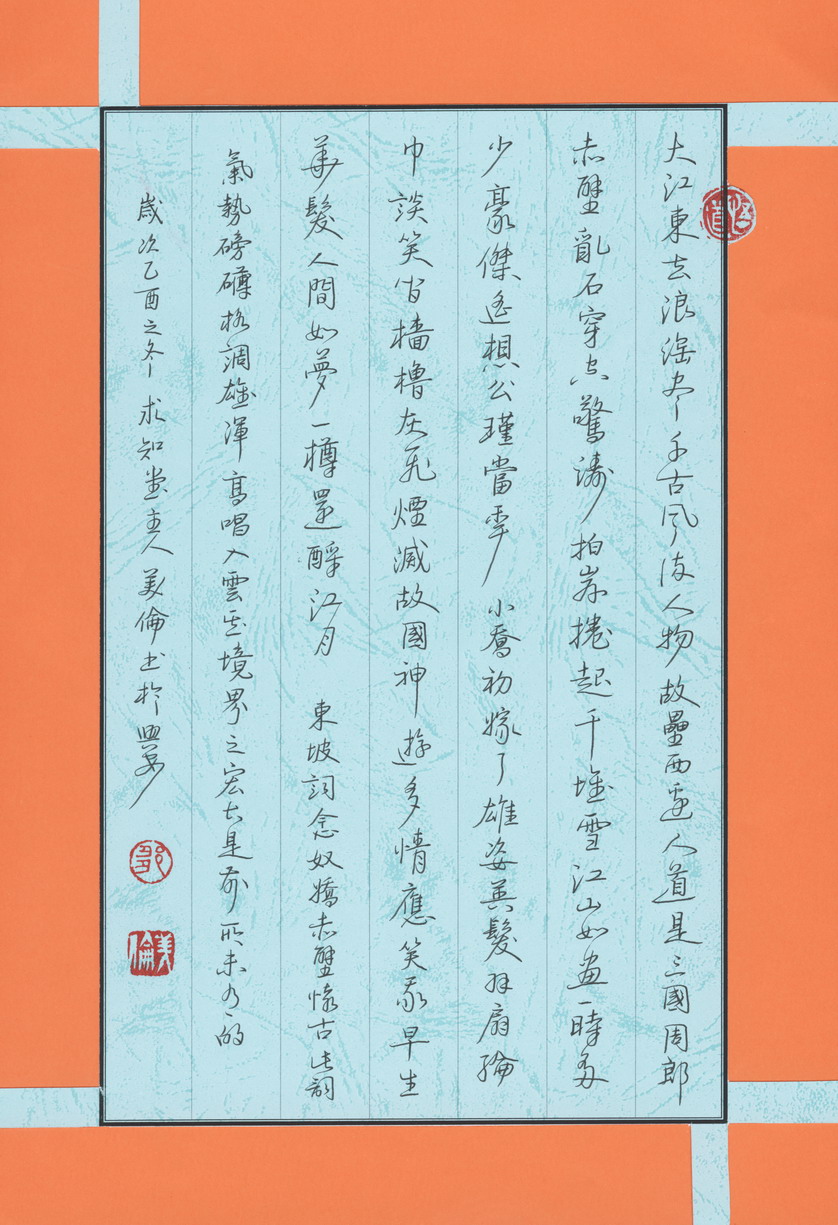 大江東去浪淘盡千古風流人物故壘西邊人道是三國周郎
赤壁亂石穿空驚濤拍岸捲起千堆雪江山如畫一時多
少豪傑遙想公瑾當年小喬初嫁了雄姿英髮羽扇綸
巾談笑間檣櫓灰飛煙滅故國神遊多情應笑我早生
華髮人間如夢一樽還酹江月 東坡詞念奴嬌赤壁懷古此詞
氣勢磅礴格調雄渾高唱入雲其境界之宏大是前所未有的
歲次乙酉之冬求知堂主人美倫書於
悟道
鄒
美倫